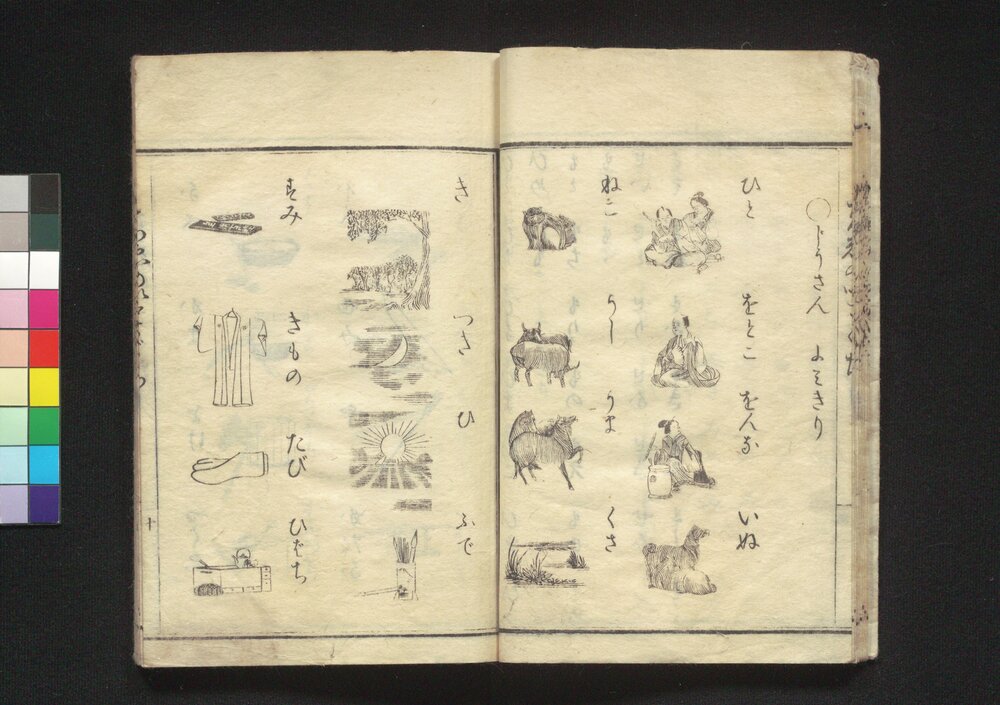 ひと
をとこ
をんな
いぬ
ねこ
うし
うま
くさ
き
つき
ひ
ふで
すみ
きもの
たび
ひばち
十